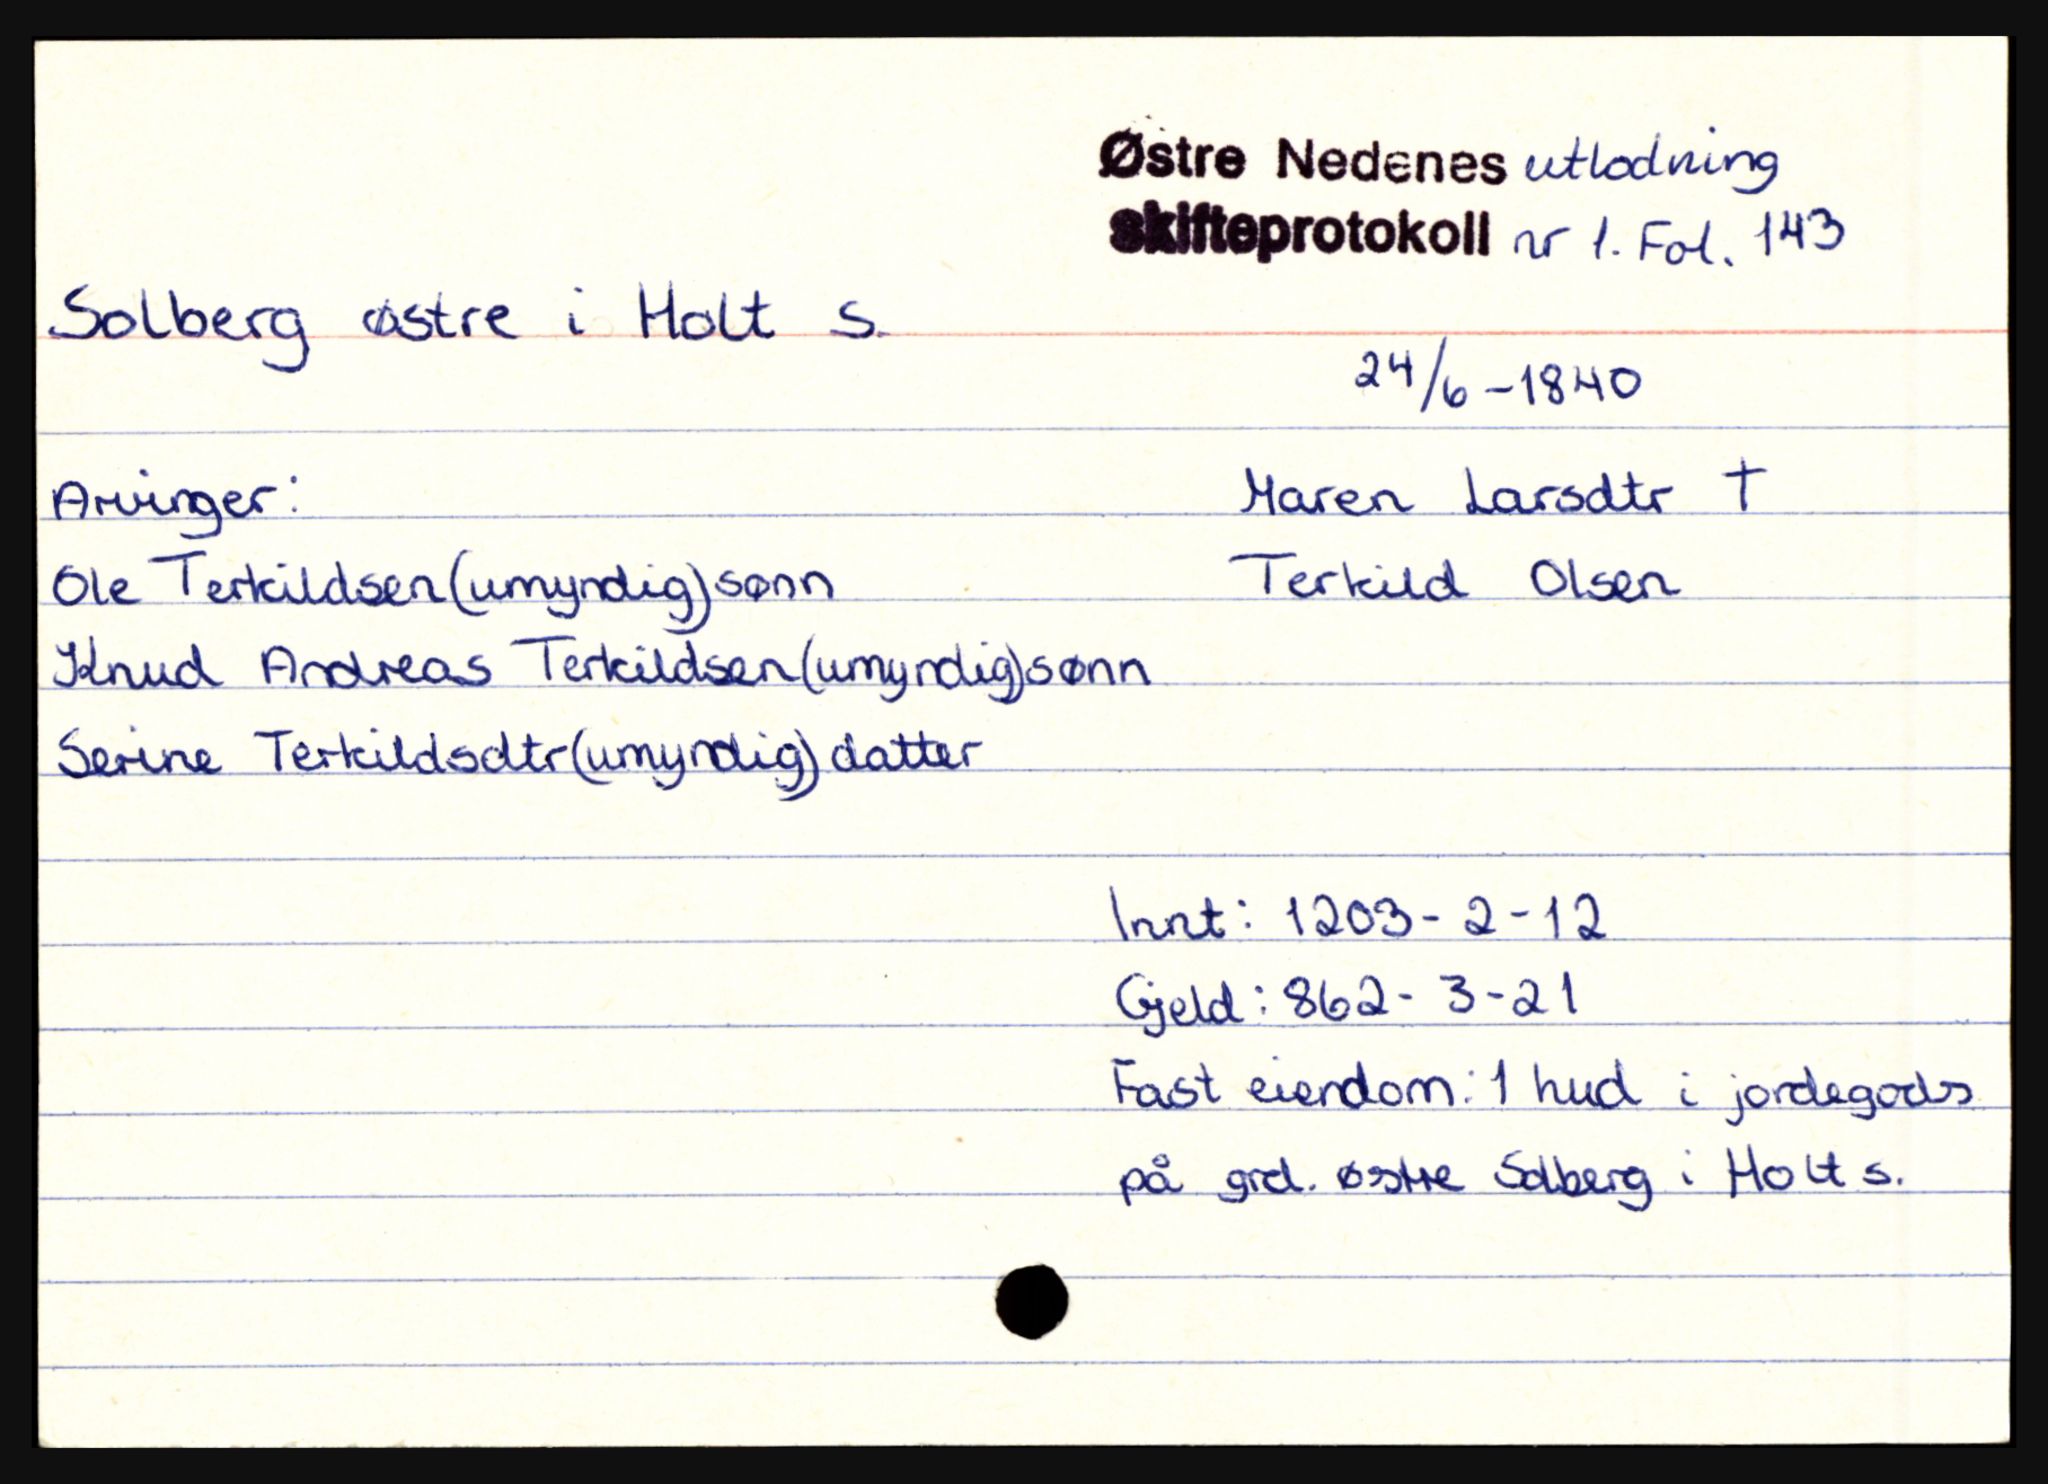 Østre Nedenes utlodning
skifteprotokoll nr 1. Fol. 143
Solberg østre i Holt s.
24/6 - 1840
Arvinger:
Maren Larsdtr †
Ole Terkildsen (umyndig) sønn
Terkild Olsen
Knud Andreas Terkildsen (umyndig) sønn
Serine Terkildsdtr (umyndig) datter
Innt: 1203 - 2 - 12
Gjeld: 862 - 3 - 21
Fast eiendom: 1 hud i jordegods
på grd. østre Solberg i Holt s.